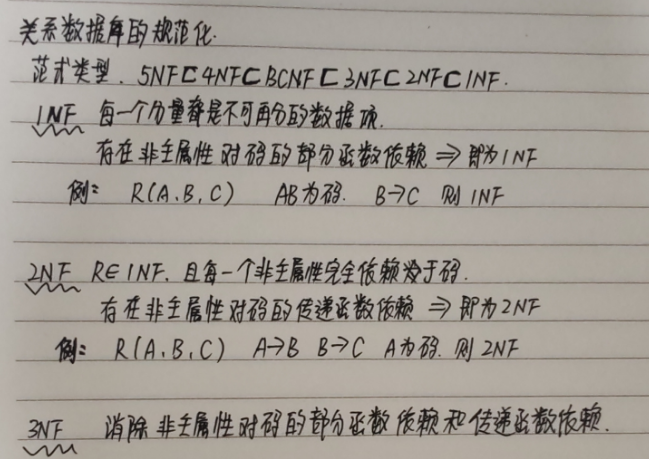 关系数据库的规范化.
范式类型. 5NF⊏4NF⊏BCNF⊏3NF⊏2NF⊏1NF.
1NF 每一个分量都是不可再分的数据项.
存在非主属性对码的部分函数依赖 ⇒ 即为1NF
例: R(A.B.C) AB为码. B→C 则1NF
2NF R∈1NF. 且每一个非主属性完全依赖于码.
存在非主属性对码的传递函数依赖 ⇒ 即为2NF
例: R(A.B.C) A→B B→C A为码. 则2NF
3NF 消除非主属性对码的部分函数依赖和传递函数依赖.